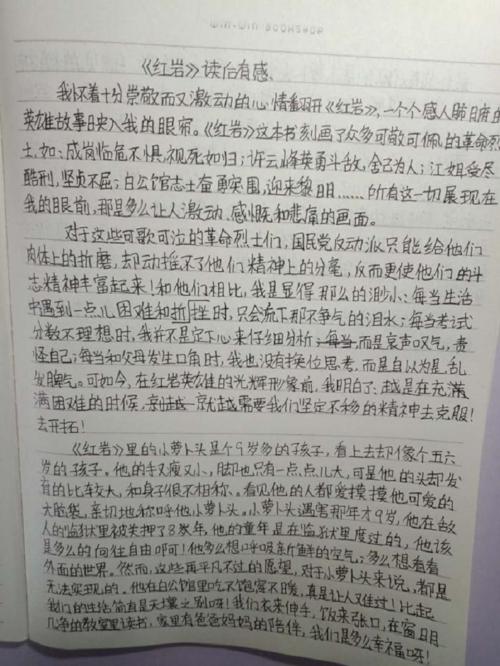 《红岩》读后有感、
我怀着十分崇敬而又激动的心情翻开《红岩》,一个个感人肺腑的
英雄故事映入我的眼帘。《红岩》这本书刻画了众多可敬可佩的革命烈
士,如:成岗临危不惧,视死如归;许云峰英勇斗敌,舍己为人;江姐受尽
酷刑,坚贞不屈;白公馆志士奋勇突围,迎来黎明……所有这一切展现在
我的眼前,那是多么让人激动、感慨和悲痛的画面。
对于这些可歌可泣的革命烈士们,国民党反动派只能给他们
肉体上的折磨,却动摇不了他们精神上的分毫,反而更使他们的斗
志精神丰富起来!和他们相比,我是显得那么的渺小:每当生活
中遇到一点儿困难和挫折时,只会流下那不争气的泪水;每当考试
分数不理想时,我并不是定下心来仔细分析,而是哀声叹气,责
怪自己;每当和父母发生口角时,我也没有换位思考,而是自以为是,乱
发脾气。可如今,在红岩英雄的光辉形象前,我明白了:越是在充满
满困难的时候,就越需要我们坚定不移的精神去克服!
去开拓!
《红岩》里的小萝卜头是个9岁多的孩子,看上去却像个五六
岁的孩子。他的手又瘦又小,脚也只有一点点儿大,可是他的头却发
育的比较大,和身子很不相称。看见他的人都爱摸摸他可爱的
大脑袋,亲切地称呼他小萝卜头。小萝卜头遇害那年才9岁,他在敌
人的监狱里被关押了8家年,他的童年是在监狱里度过的,他该
是多么的向往自由啊!他多么想呼吸新鲜的空气;多么想看看
外面的世界。然而,这些再平凡不过的愿望,对于小萝卜头来说,都是
无法实现的。他在白公馆里吃不饱穿不暖,真是让人难过!比起
我们的生活简直是天壤之别呀!我们衣来伸手,饭来张口,在窗明
几净的教室里读书,家里有爸爸妈妈的陪伴,我们是多么幸福呀!